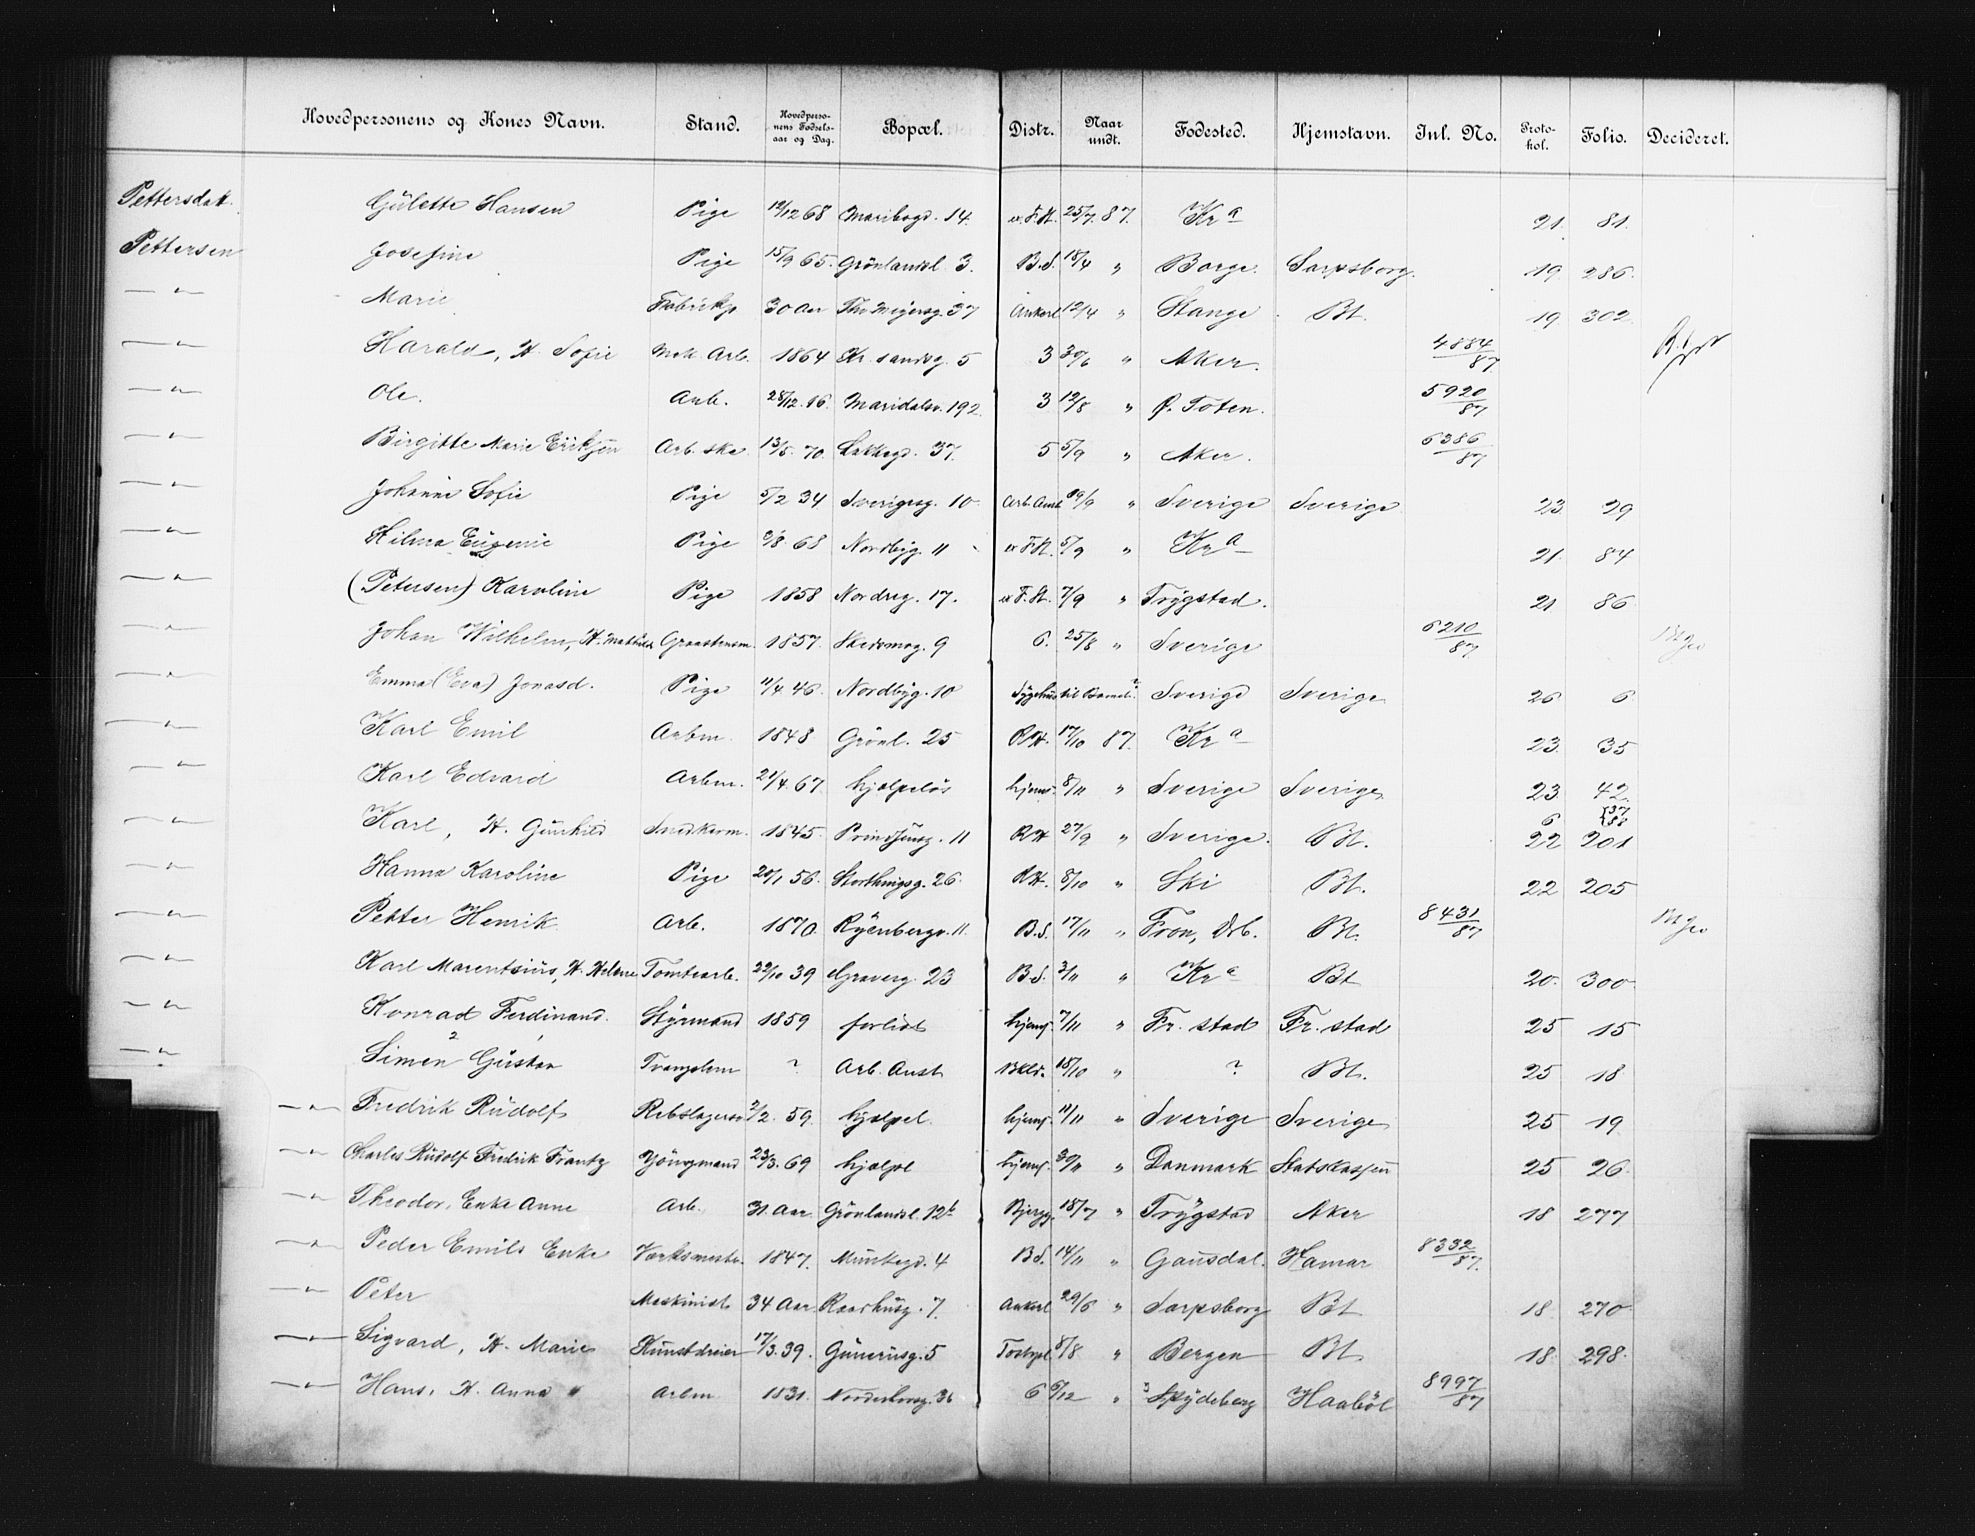 Hovedpersonens og Kones Navn. Stand. Hovedpersonens Fødselsaar og Dag. Bopæl. Distr. Naar undt. Fødested. Hjemstavn. Jnl. No. Protokol. Folio. Decideret.
Pettersdat. Gülette Hansen Pige 12/12 68 Maribogd. 14. 25/7 87. Kr a 21. 81.
Pettersen Josefine Pige 15/9 65. Grönlandsl. 3. B.S. 18/4 " Borge. Sarpsborg. 19 286.
—"— Marie Fabrikp 30 Aar Th. Meyersg. 37 Ankerl 12/4 " Stange Bt. 19 302.
—"— Harald, H. Sofie Mek. Arb. 1864 Kr. sandsg. 5 3 30/6 " Aker. 4884/87
—"— Ole. Arb. 28/12. 16. Maridalsv. 192. 3 12/8 " Ø. Toten. 5920/87
—"— Birgitte Marie Eriksen Arb. ske 13/5. 70. Lakkegd. 37. 5 5/9 " Aker. 6386/87
—"— Johanne Sofie Pige 5/2 34 Sverigesg. 10 Arb. Anst 19/9 " Sverige Sverige 23 29
—"— Hilma Eugenie Pige 68 Nordbyg. 11 5/9 " Kr a 21. 84
—"— (Petersen) Karoline Pige 1858 Nordreg. 17. 7/9 " Trygstad. 21 86
—"— Johan Wilhelm, H. Mathilde Graastensm. 1857. Skedsmog. 9 6. 25/8 " Sverige 6210/87
—"— Emma (Eva) Jonasd. Pige 11/4 46. Nordbyg. 10 Sverige Sverige 26 6
—"— Karl Emil Arbm. 1848 Grönl. 25 RH. 17/10 87. Kr a 23. 35
—"— Karl Edvard Arbm. 21/4. 67. hjælpelös hjemf. 8/11 " Sverige Sverige 23 42
—"— Karl, H. Gunhild Snedkerm. 1845. Prindsensg. 11 RH 27/9 " Sverige. Bt. 6 22 {37 88 201
—"— Hanna Karoline Pige 20/1 56. Storthingsg. 26. RH. 8/10 " Ski Bt. 22 205
—"— Petter Henrik Arb. 1870. Ryenbergv. 11. B.S. 17/11 " Fron, Drb. Bt. 8431/87
—"— Karl Marentsius, H. Helene Tomtearb. 22/10 39 Graverg. 23 B.S. 3/11 " Kr a Bt 20. 300.
—"— Konrad Ferdinand. Styrmand 1859 forlidt hjemf. 7/11 " Fr. stad Fr. stad 25 15
—"— Simen Gustav Tvangslem ? Arb. Anst 18/10 " ? Bt. 25 18
—"— Fredrik Rudolf Rebslagersv. 2/2. 59. hjælpel. hjemf. 11/11 " Sverige Sverige 25 19
—"— Charles Rudolf Fredrik Frantz Jöngmand 23/3. 69 hjælpl hjemf. 30/11 " Danmark Statskassen 25 26.
—"— Theodor, Enke Anne Arb. 31. Aar Grönlandsl. 12b Bjergg. 18/7 " Trygstad Aker 18 277
—"— Peder Emils Enke Værksmestr. 1847. Munkegd. 4 B.S. 14/11 " Gausdal. Hamar 8332/87.
—"— Peter Maskinist 34 Aar Raadhusg. 7. Ankerl 29/6 " Sarpsborg Bt 18. 270
—"— Sigvard, H. Marie Kunstdreier 17/3. 39. Gunerusg. 5 8/8 " Bergen Bt. 18. 298.
—"— Hans, H. Anna Arbm 1831. Nordahlsg. 36 6 6/12 " Spydeberg Haaböl 8997/87